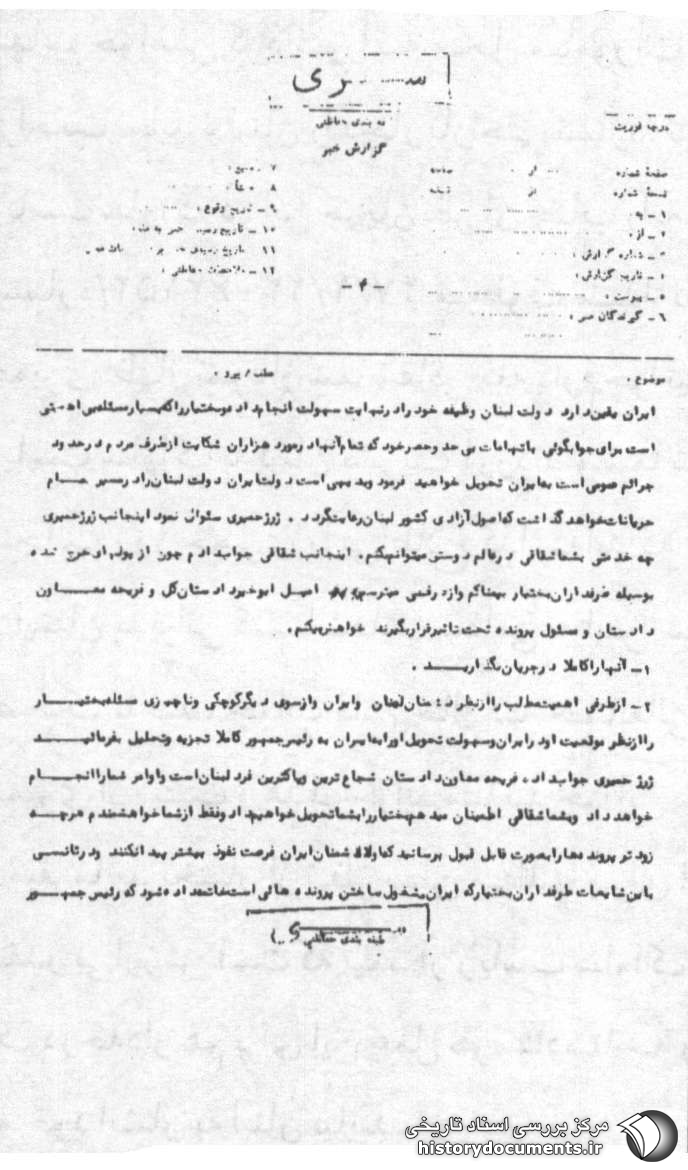 سری
طبقه بندی حفاظتی
گزارش خبر
درجه فوریت
صفحهٔ شماره از صفحه
نسخهٔ شماره از نسخه
۱ - به
۲ - از :
۳ - شماره گزارش :
۴ - تاریخ گزارش :
۵ - پیوست :
۶ - گیرندگان خبر :
۷ - منبع :
۸ - منشأ :
۹ - تاریخ وقوع :
۱۰ - تاریخ رسیدن خبر به منبع :
۱۱ - تاریخ رسیدن خبر به
۱۲ - ملاحظات حفاظتی :
- ۴ -
موضوع : عطف / پیرو :
ایران یقین دارد دولت لبنان وظیفه خود را در نهایت سهولت انجام داده و بختیار را که بسیار مسئله بی اهمیتی
است برای جوابگوئی باتهامات بی حد و حصر خود که تمام آنها در مورد هزاران شکایت از طرف مردم در حدود
جرائم عمومی است به ایران تحویل خواهید فرمود و بدیهی است دولت ایران دولت لبنان را در مسیر تمام
جریانات خواهد گذاشت که اصول آزادی کشور لبنان رعایت گردد . ژرژ حمیری سئوال نمود اینجانب ژرژ حمیری
چه خدمتی بشما شقاقی در عالم دوستی میتوانم بکنم . اینجانب شقاقی جواب دادم چون از پولهای خرج شده
بوسیله طرفداران بختیار بیمناکم و از در رفتن میترسم امیل ابوخیر دادستان کل و فریحه معاون
دادستان و مسئول پرونده تحت تاثیر قرار بگیرند خواهش میکنم .
۱ - آنها را کاملا در جریان بگذارید .
۲ - از طرفی اهمیت مطلب را از نظر دشمنان لبنان و ایران و از سوی دیگر کوچکی و ناچیزی مسئله بختیار
را از نظر موقعیت او در ایران و سهولت تحویل او را به ایران به رئیس جمهور کاملا تجزیه و تحلیل بفرمائید
ژرژ حمیری جواب داد ، فریحه معاون دادستان شجاع ترین و پاکترین فرد لبنان است و اوامر شما را انجام
خواهد داد و بشما شقاقی اطمینان میدهم بختیار را بشما تحویل خواهیم داد و فقط از شما خواهشمندم هرچه
زودتر پرونده ها را بصورت قابل قبول برسانید که اولا دشمنان ایران فرصت نفوذ بیشتر پیدا نکنند و در ثانی
باین شایعات طرفداران بختیار که ایران مشغول ساختن پرونده هائی است خاتمه داده شود که رئیس جمهور
سری
طبقه بندی حفاظتی
مرکز بررسی اسناد تاریخی
historydocuments.ir